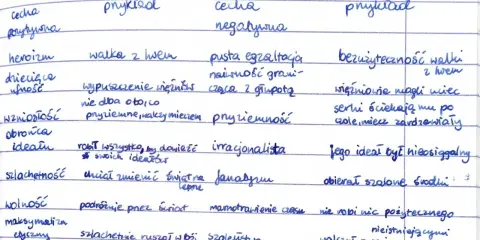 cecha przykład cecha przykład
pozytywna negatywna
heroizm walka z lwem pusta egzaltacja bezużyteczność walki z lwem
dziecięca ufność wypuszczenie więźniów naiwność granicząca z głupotą więźniowie mogli uciec
nie dba o to, co przyziemne, naksymieczem
wzniosłość przyziemność serki ściekają mu po czole, miecz zardzewiały
obrońca ideału robił wszystko, by dowieść swoich ideałów irracjonalista jego ideał był nieosiągalny
szlachetność chciał zmienić świat na lepsze fanatyzm obierał szalone środki
wolność podróżuje przez świat marnotrawienie czasu nie robi nic pożytecznego
maksymalizm etyczny szlachetnie ruszał szaleństwo nieistniejącymi